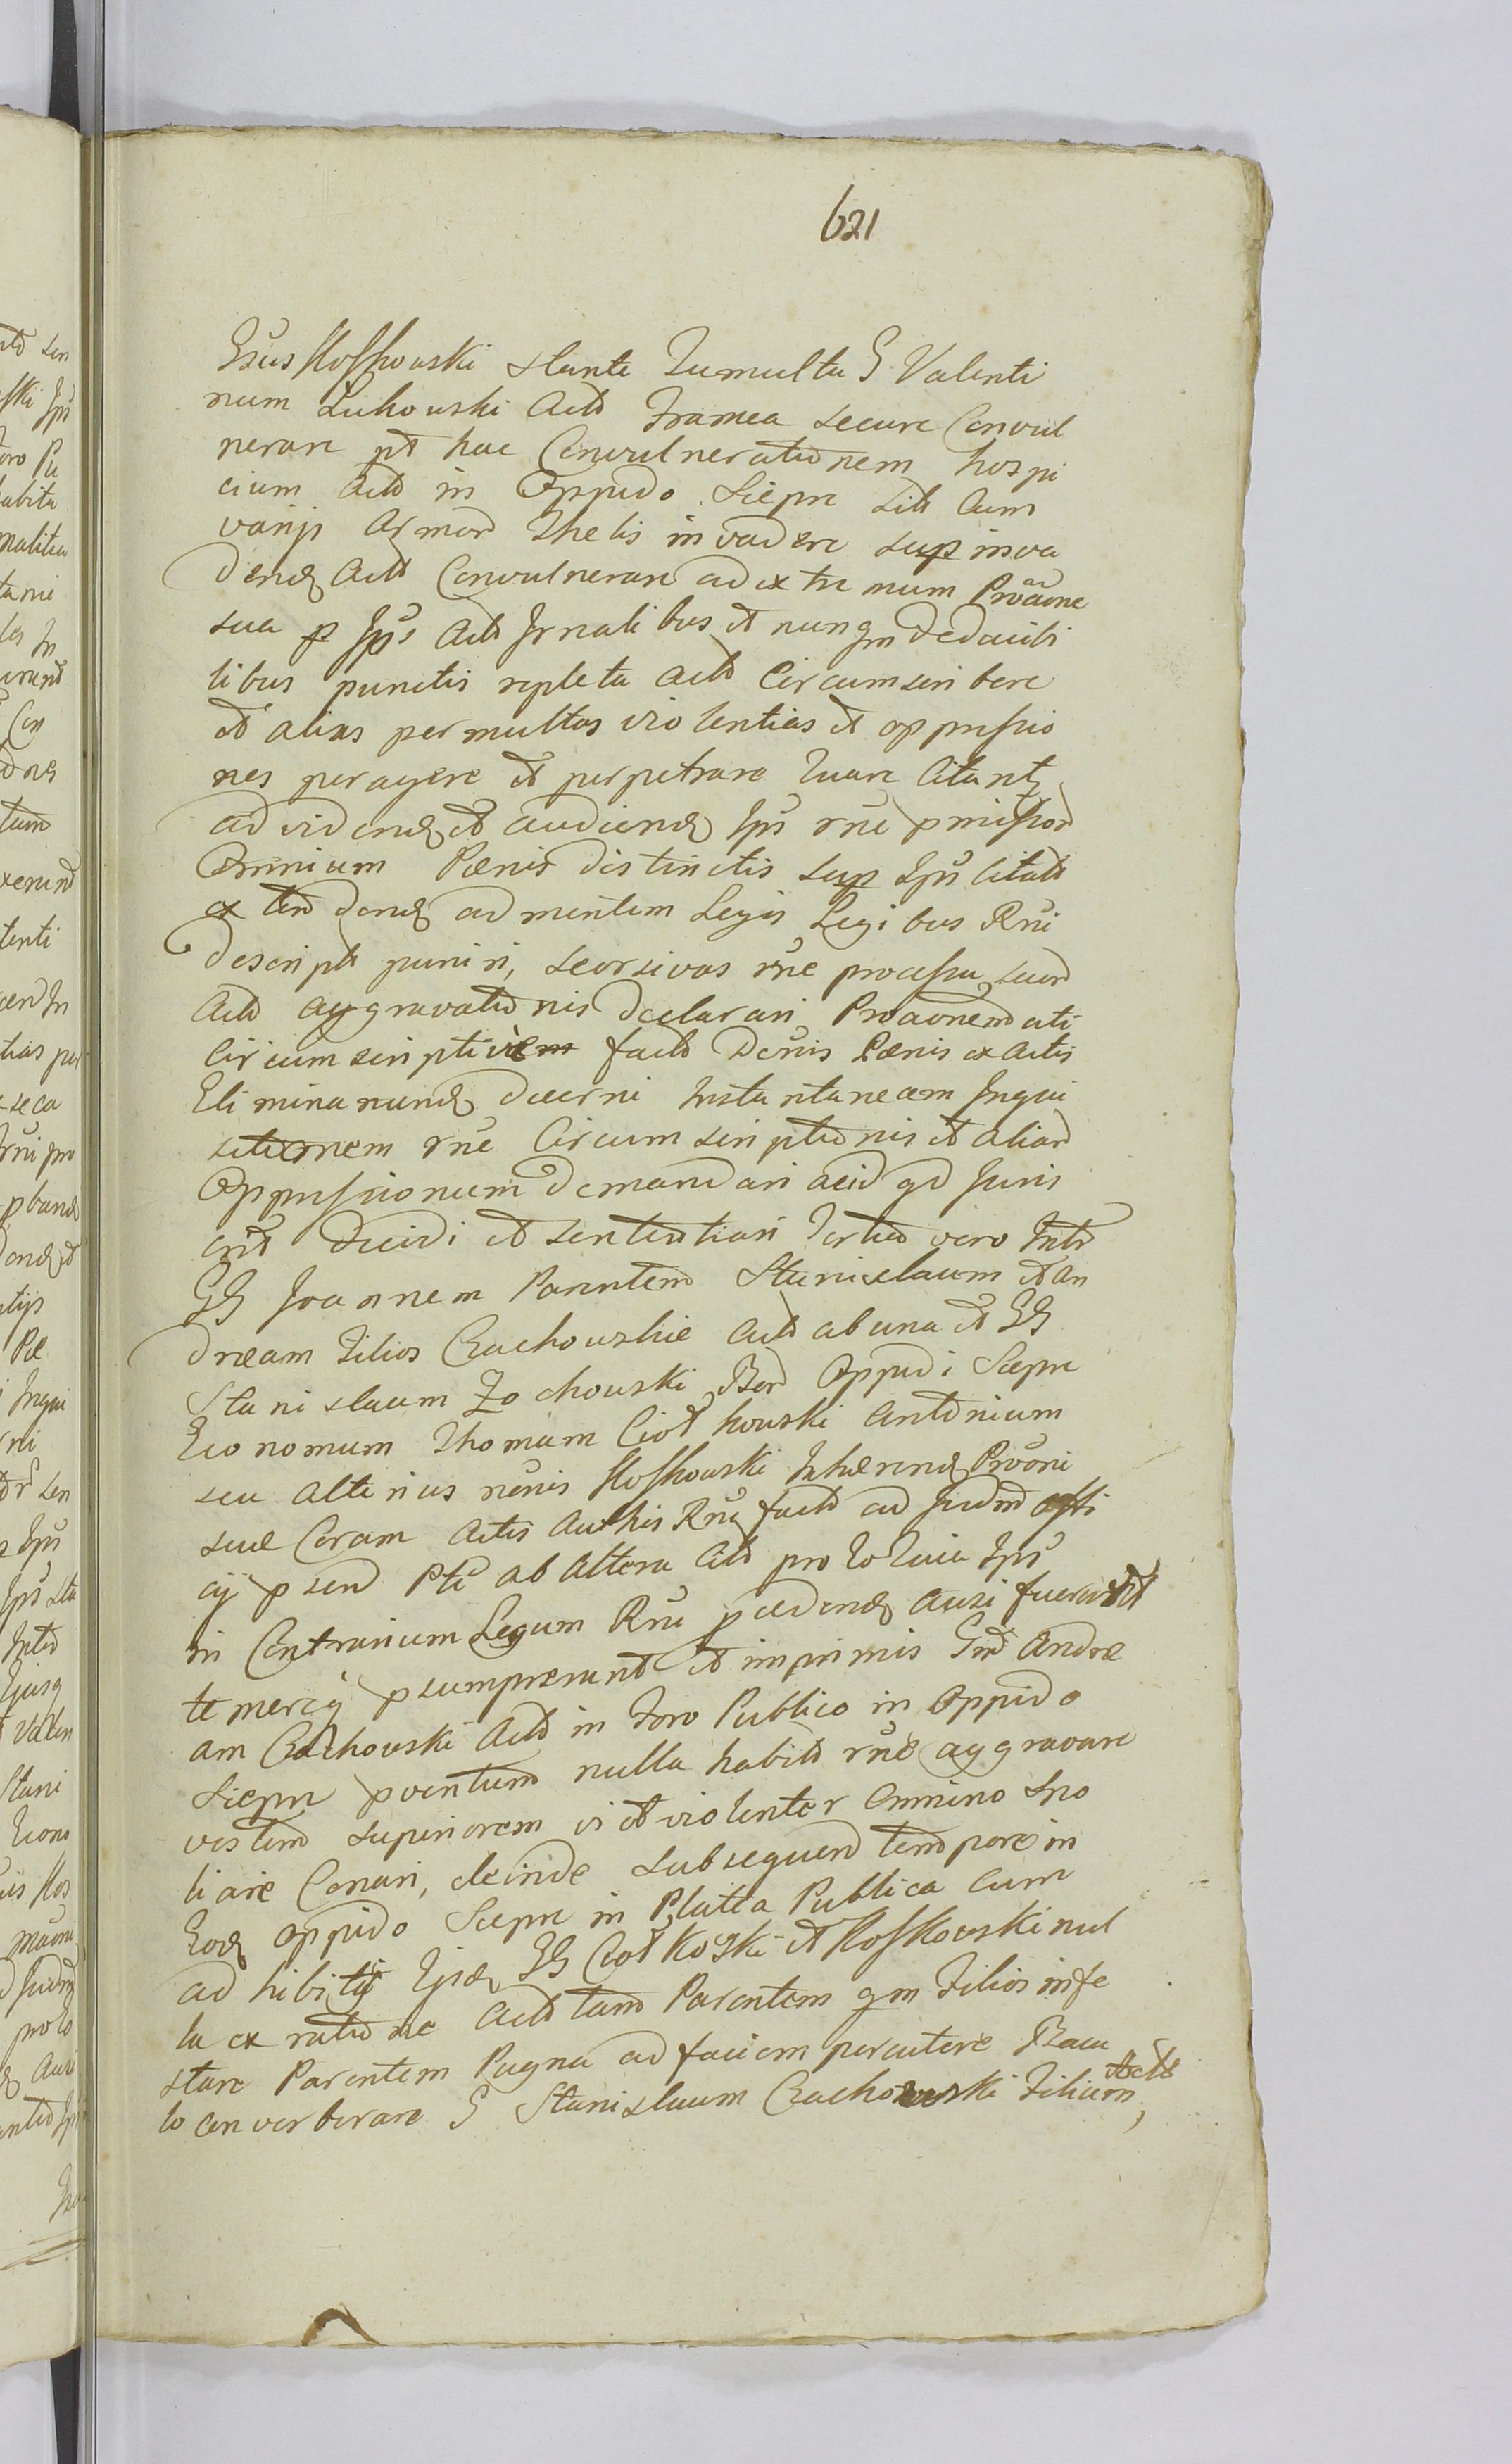 621
Gsus Kosskowski stante Tumultu G Valenti
num Lukowski Actd Framea secure Convul
nerare pt hac Convulnerationem hospi
cium Actd in Oppido Siepre sitt Cum
varijs Armor Thelis invadere sup inva
dend Actt Convulnerare ad extremum Proaone
sua p Ips Actt Irnalibus et nunqm deducibi
libus punctis repleta Actd Circumscribere
et alias permultas violentias et oppressio
nes peragere et perpetrare Quare Citant
ad vidend et audiend Ips rne pmissor
Omnium Pænis distinctis sup Ips Citatt
extendend ad mentem Legis Legibus Rni
descriptt puniri, seorsivas rne processu suor
Actt aggravationis declarari Proaonem uti
Circumscriptive factt Denis Pænis ex Actis
Eliminanund decerni Instantaneam Inqui
sitionem rne Circumscriptionis et aliar
Oppressionum demandari acid qd Juris
erit decidi et sententiari Tertio vero Intt
GG Joannem Parentem Stanislaum et An
dream Filios Czachowskie Actt ab una et GG
Stanislaum Zochowski Bor Oppidi Siepre
Economum Thomam Ciotkowski Antonium
seu alterius nenis Kosskowski Inhærend Proaoni
suæ Coram Actis Authis Rni factt ad Judm Offi
cij psend Pte ab Altera Citt pro eo Quia Ips
in Contrarium Legum Rni pcedend Ausi fuerunt et
temerej psumpserunt et imprimis Gm Andre
am Czachowski Actt in Foro Publico in Oppido
Siepre pventum nulla habitt rne aggravare
vestem superiorem vi et violenter Omnino Spo
liare Conari, deinde subsequend tempore in
Eod Oppido Siepre in Platea Publica Cum
adhibitis Ejsd GG Ciotkoski et Kosskowski nul
la ex ratione Actt tam Parentem qm Filios infe
stare Parentem Pugna ad faciem percutere Bacu
lo Converberare G Stanislaum Czachowski Filium Actt